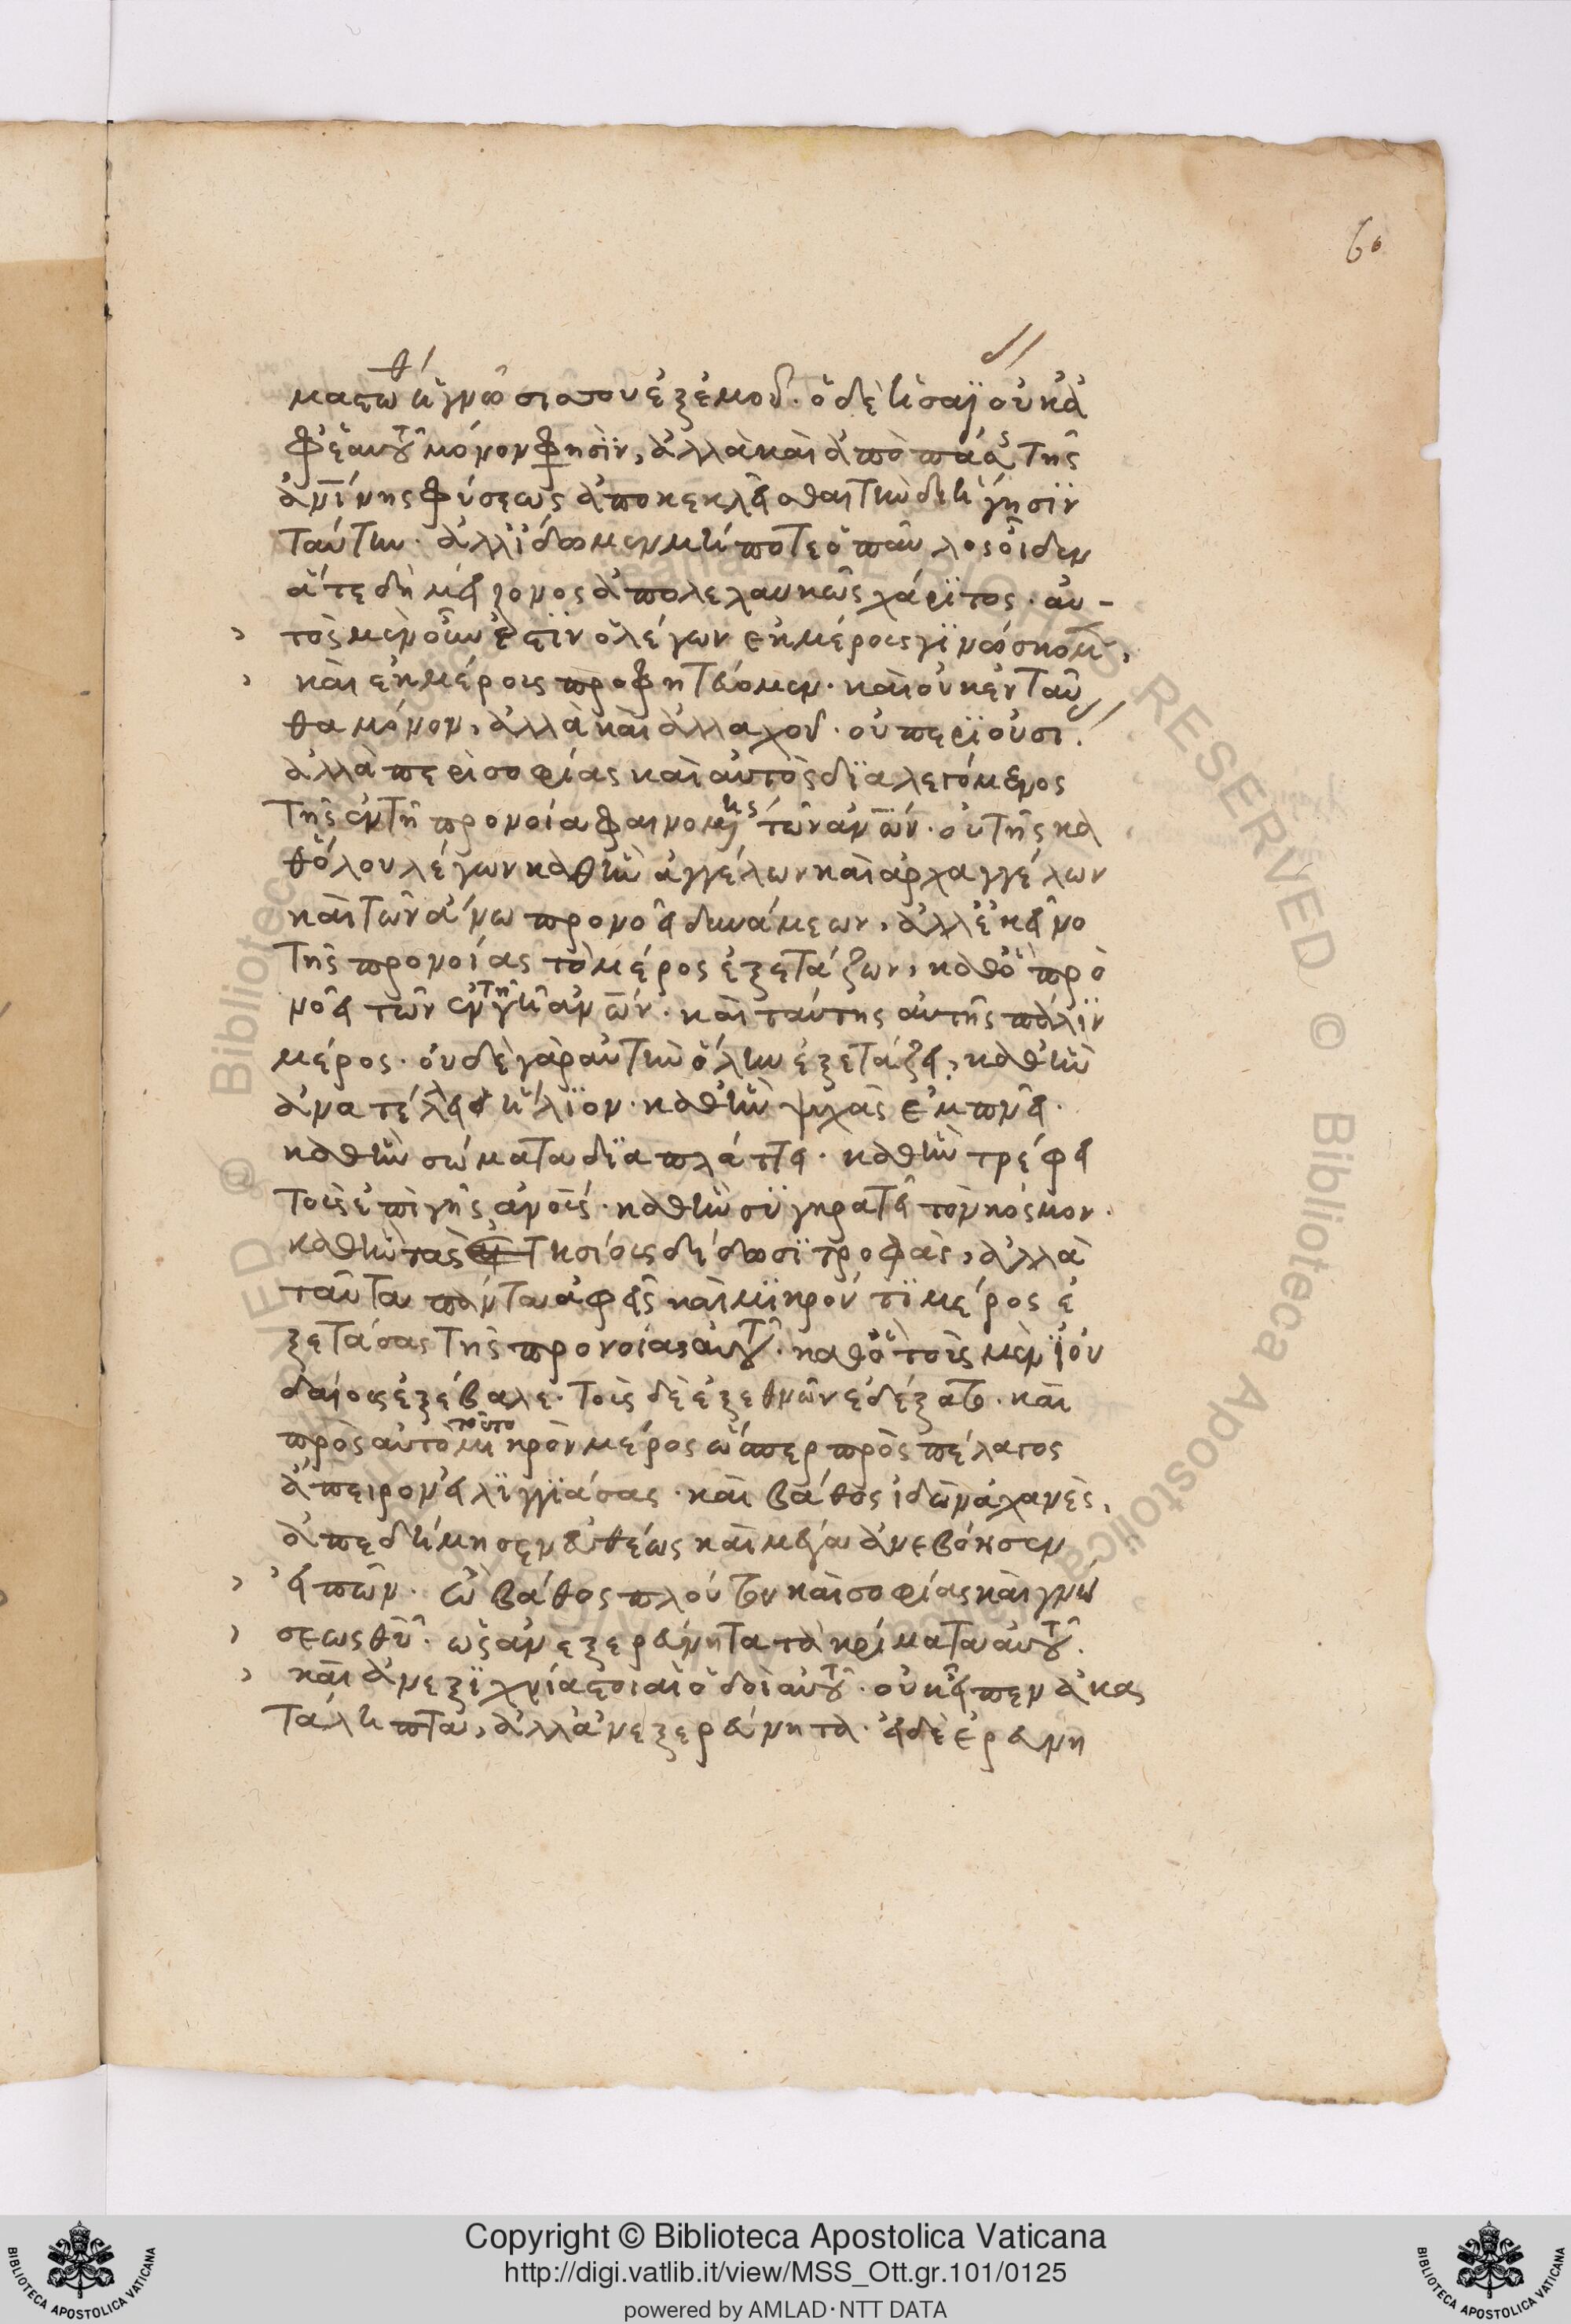 60
μαστώθη ἡ γνῶσίς σου ἐξ ἐμοῦ. ὁ δὲ ἡσαΐ οὐκ ἀ
φ' ἑαυτοῦ μόνον φησὶν, ἀλλὰ καὶ ἀπὸ πάσ τῆς
ἀν̅ίνης φύσεως ἀποκεκλεῖσθαι τὴν διήγησϊν
ταύτην. ἀλλ' ἴδωμεν μήποτε ὁ παῦλος οἶδεν
ἅτε δὴ μείζονος ἀπολελαυκὼς χάριτος. αὐ-
τὸς μὲν οὖν ἐστϊν ὁ λέγων ἐκ μέρους γϊνώσκομ,
καὶ ἐκ μέρους προφητεύομεν. καὶ οὐκ ἐνταῦ
θα μόνον, ἀλλὰ καὶ ἀλλαχοῦ. οὐ περὶ οὐσι.
ἀλλὰ περὶ σοφίας καὶ αὐτὸς διαλεγόμενος
τῆς ἐν τῆ προνοία φαινομένης τῶν ἀν̅ων. οὐ τῆς κα
θόλου λέγων καθ' ἣν ἀγγέλων καὶ ἀρχαγγέλων
καὶ τῶν ἄνω προνοεῖ δυνάμεων, ἀλλ' ἐκεῖνο
τῆς προνοίας τὸ μέρος ἐξετάζων, καθ' ὃ προ
νοεῖ τῶν ἐν τῆ γῆ ἀν̅ων. καὶ ταύτης αὐτῆς πάλϊν
μέρος. οὐδὲ γὰρ αὐτὴν ὅλην ἐξετάζει, καθ' ἣν
ἀνατέλλει ἥλϊον. καθ' ἣν ψυχὰς ἐμπνεῖ.
καθ' ἣν σώματα δϊαπλάττει. καθ' ἣν τρέφει
τοὺς ἐπὶ γῆς ἀν̅ους. καθ' ἣν συγκρατεῖ τὸν κόσμον.
καθ' ἣν τὰς ἐτησίους δίδωσϊ τροφὰς, ἀλλὰ
ταῦτα πάντα ἀφεὶς καὶ μϊκρόν τϊ μέρος ἐ
ξετάσας τῆς προνοίας αὐτοῦ. καθ' ὃ τοὺς μὲν ϊου
δαίους ἐξέβαλε. τοὺς δὲ ἐξ ἐθνῶν ἐδέξατο. καὶ
πρὸς αὐτὸ τοῦτο μικρὸν μέρος ὥσπερ πρὸς πέλαγος
ἄπειρον εἰλϊγγϊάσας. καὶ βάθος ἰδὼν ἀχανὲς,
ἀπεδήμησεν εὐθέως καὶ μέγα ἀνεβόησεν
εἰπὼν. ὦ βάθος πλούτου καὶ σοφίας καὶ γνώ
σεως θ̅υ. ὡς ἀνεξερεύνητα τὰ κρίματα αὐτοῦ.
καὶ ἀνεξϊχνίαστοι αἱ ὁδοὶ αὐτοῦ. οὐκ εἶπεν ἀκα
τάληπτα, ἀλλ' ἀνεξερεύνητα. εἰ δὲ ἐρευνη
Copyright © Biblioteca Apostolica Vaticana
http://digi.vatlib.it/view/MSS_Ott.gr.101/0125
powered by AMLAD·NTT DATA